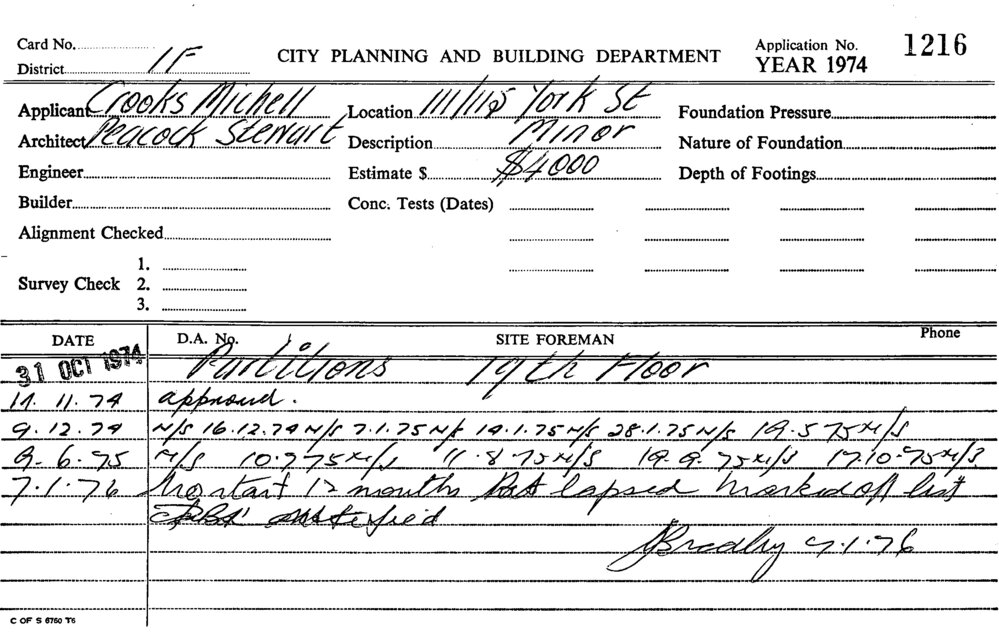 Card No.
CITY PLANNING AND BUILDING DEPARTMENT
Application No. 1216
District 1F
YEAR 1974
Applicant Crooks Michell Location 111/115 York St Foundation Pressure
Architect Peacock Stewart Description Minor Nature of Foundation
Engineer Estimate $ $4000 Depth of Footings
Builder Conc. Tests (Dates)
Alignment Checked
1.
Survey Check 2.
3.
DATE D.A. No. SITE FOREMAN Phone
31 OCT 1974 Partitions 19th Floor
11. 11. 74 approved.
9. 12. 74 N/S 16.12.74 N/S 7.1.75 N/S 14.1.75 N/S 28.1.75 N/S 19.5.75 N/S
9. 6. 75 N/S 10.7.75 N/S 11.8.75 N/S 19.9.75 N/S 17.10.75 N/S
7. 1. 76 No start 12 months Past lapsed Marked off list
notified
Bradley 7.1.76
C OF S 6760 T6